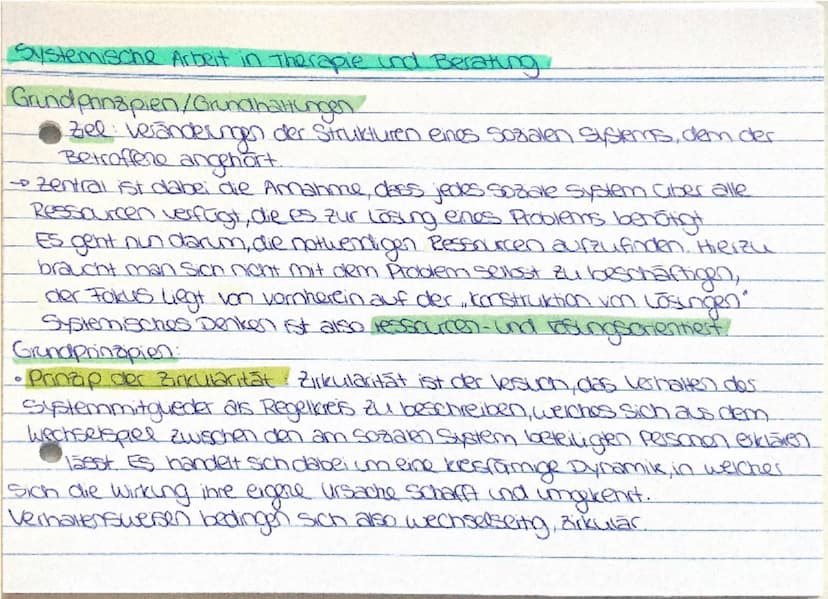 Systemische Arbeit in Therapie und Beratung
Grundprinzipien/Grundhaltungen
Ziel: Veränderungen der Strukturen eines sozialen Systems, dem der
Betroffene angehört.
→ Zentral ist dabei die Annahme, dass jedes soziale System über alle
Ressourcen verfügt, die es zur Lösung eines Problems benötigt
Es geht nun darum, die notwendigen Ressourcen aufzufinden. Hierzu
braucht man sich nicht mit dem Problem selbst zu beschäftigen,
der Fokus liegt von vornherein auf der „Konstruktion von Lösungen"
Systemisches Denken ist also ressourcen- und lösungsorientiert.
Grundprinzipien:
• Prinzip der Zirkularität: Zirkularität ist der Versuch, das Verhalten der
Systemmitglieder als Regelkreis zu beschreiben, welches sich aus dem
Wechselspiel zwischen den am sozialen System beteiligten Personen erklären
lässt. Es handelt sich dabei um eine kreisförmige Dynamik, in welcher
sich die Wirkung ihre eigene Ursache schafft und umgekehrt.
Verhaltensweisen bedingen sich also wechselseitig, zirkulär.